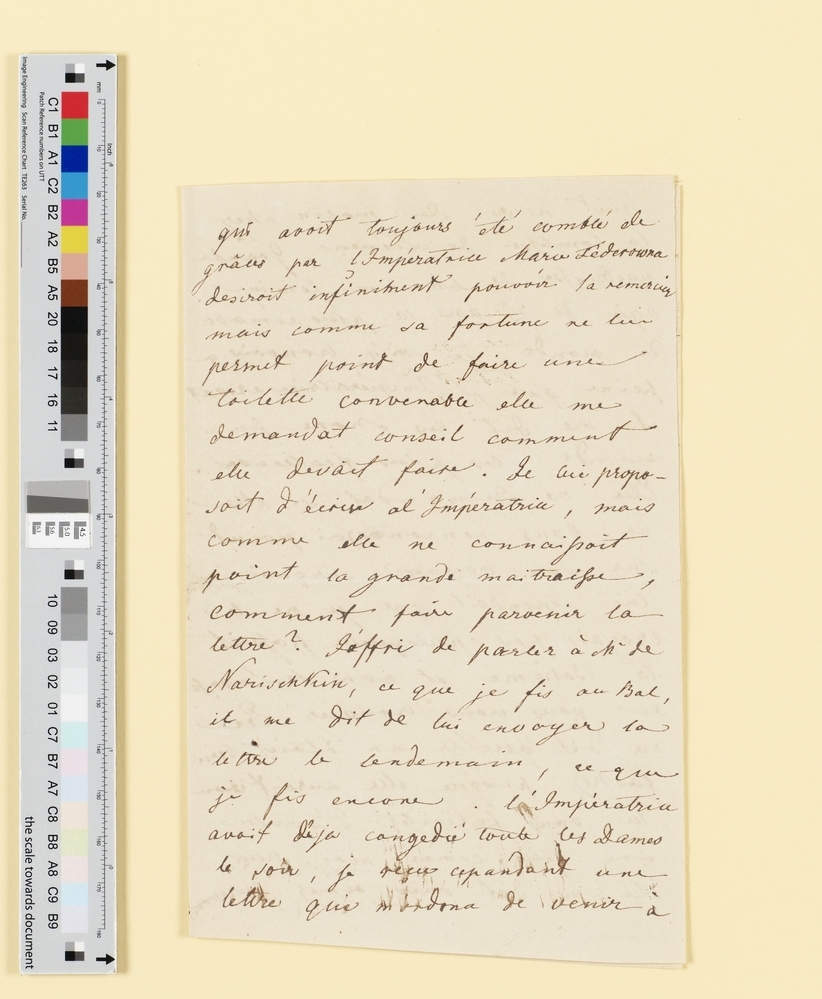 qui avoit toujours été comblé de
grâces par l'Impératrice Marie Féderowna
desiroit infiniment pouvoir la remercier
mais comme sa fortune ne lui
permet point de faire une
toilette convenable elle me
demandat conseil comment
elle devait faire. Je lui propo-
soit d'écrire al'Impératrice, mais
comme elle ne connaissoit
point la grande maitraisse,
comment faire parvenir la
lettre? J'offri de parler à Mr de
Narischkin, ce que je fis au Bal,
il me dit de lui envoyer la
lettre le lendemain, ce que
je fis encore. l'Impératrice
avait déja congedié toute les Dames
le soir, je reçu cepandant une
lettre qui m'ordona de venir à
the scale towards document
Image Engineering Scan Reference Chart TE263 Serial No.
Patch Reference numbers on UTT
mm
inch
C1 B1 A1 C2 B2 A2 B5 A5 20 18 17 16 11
10 09 03 02 01 C7 B7 A7 C8 B8 A8 C9 B9